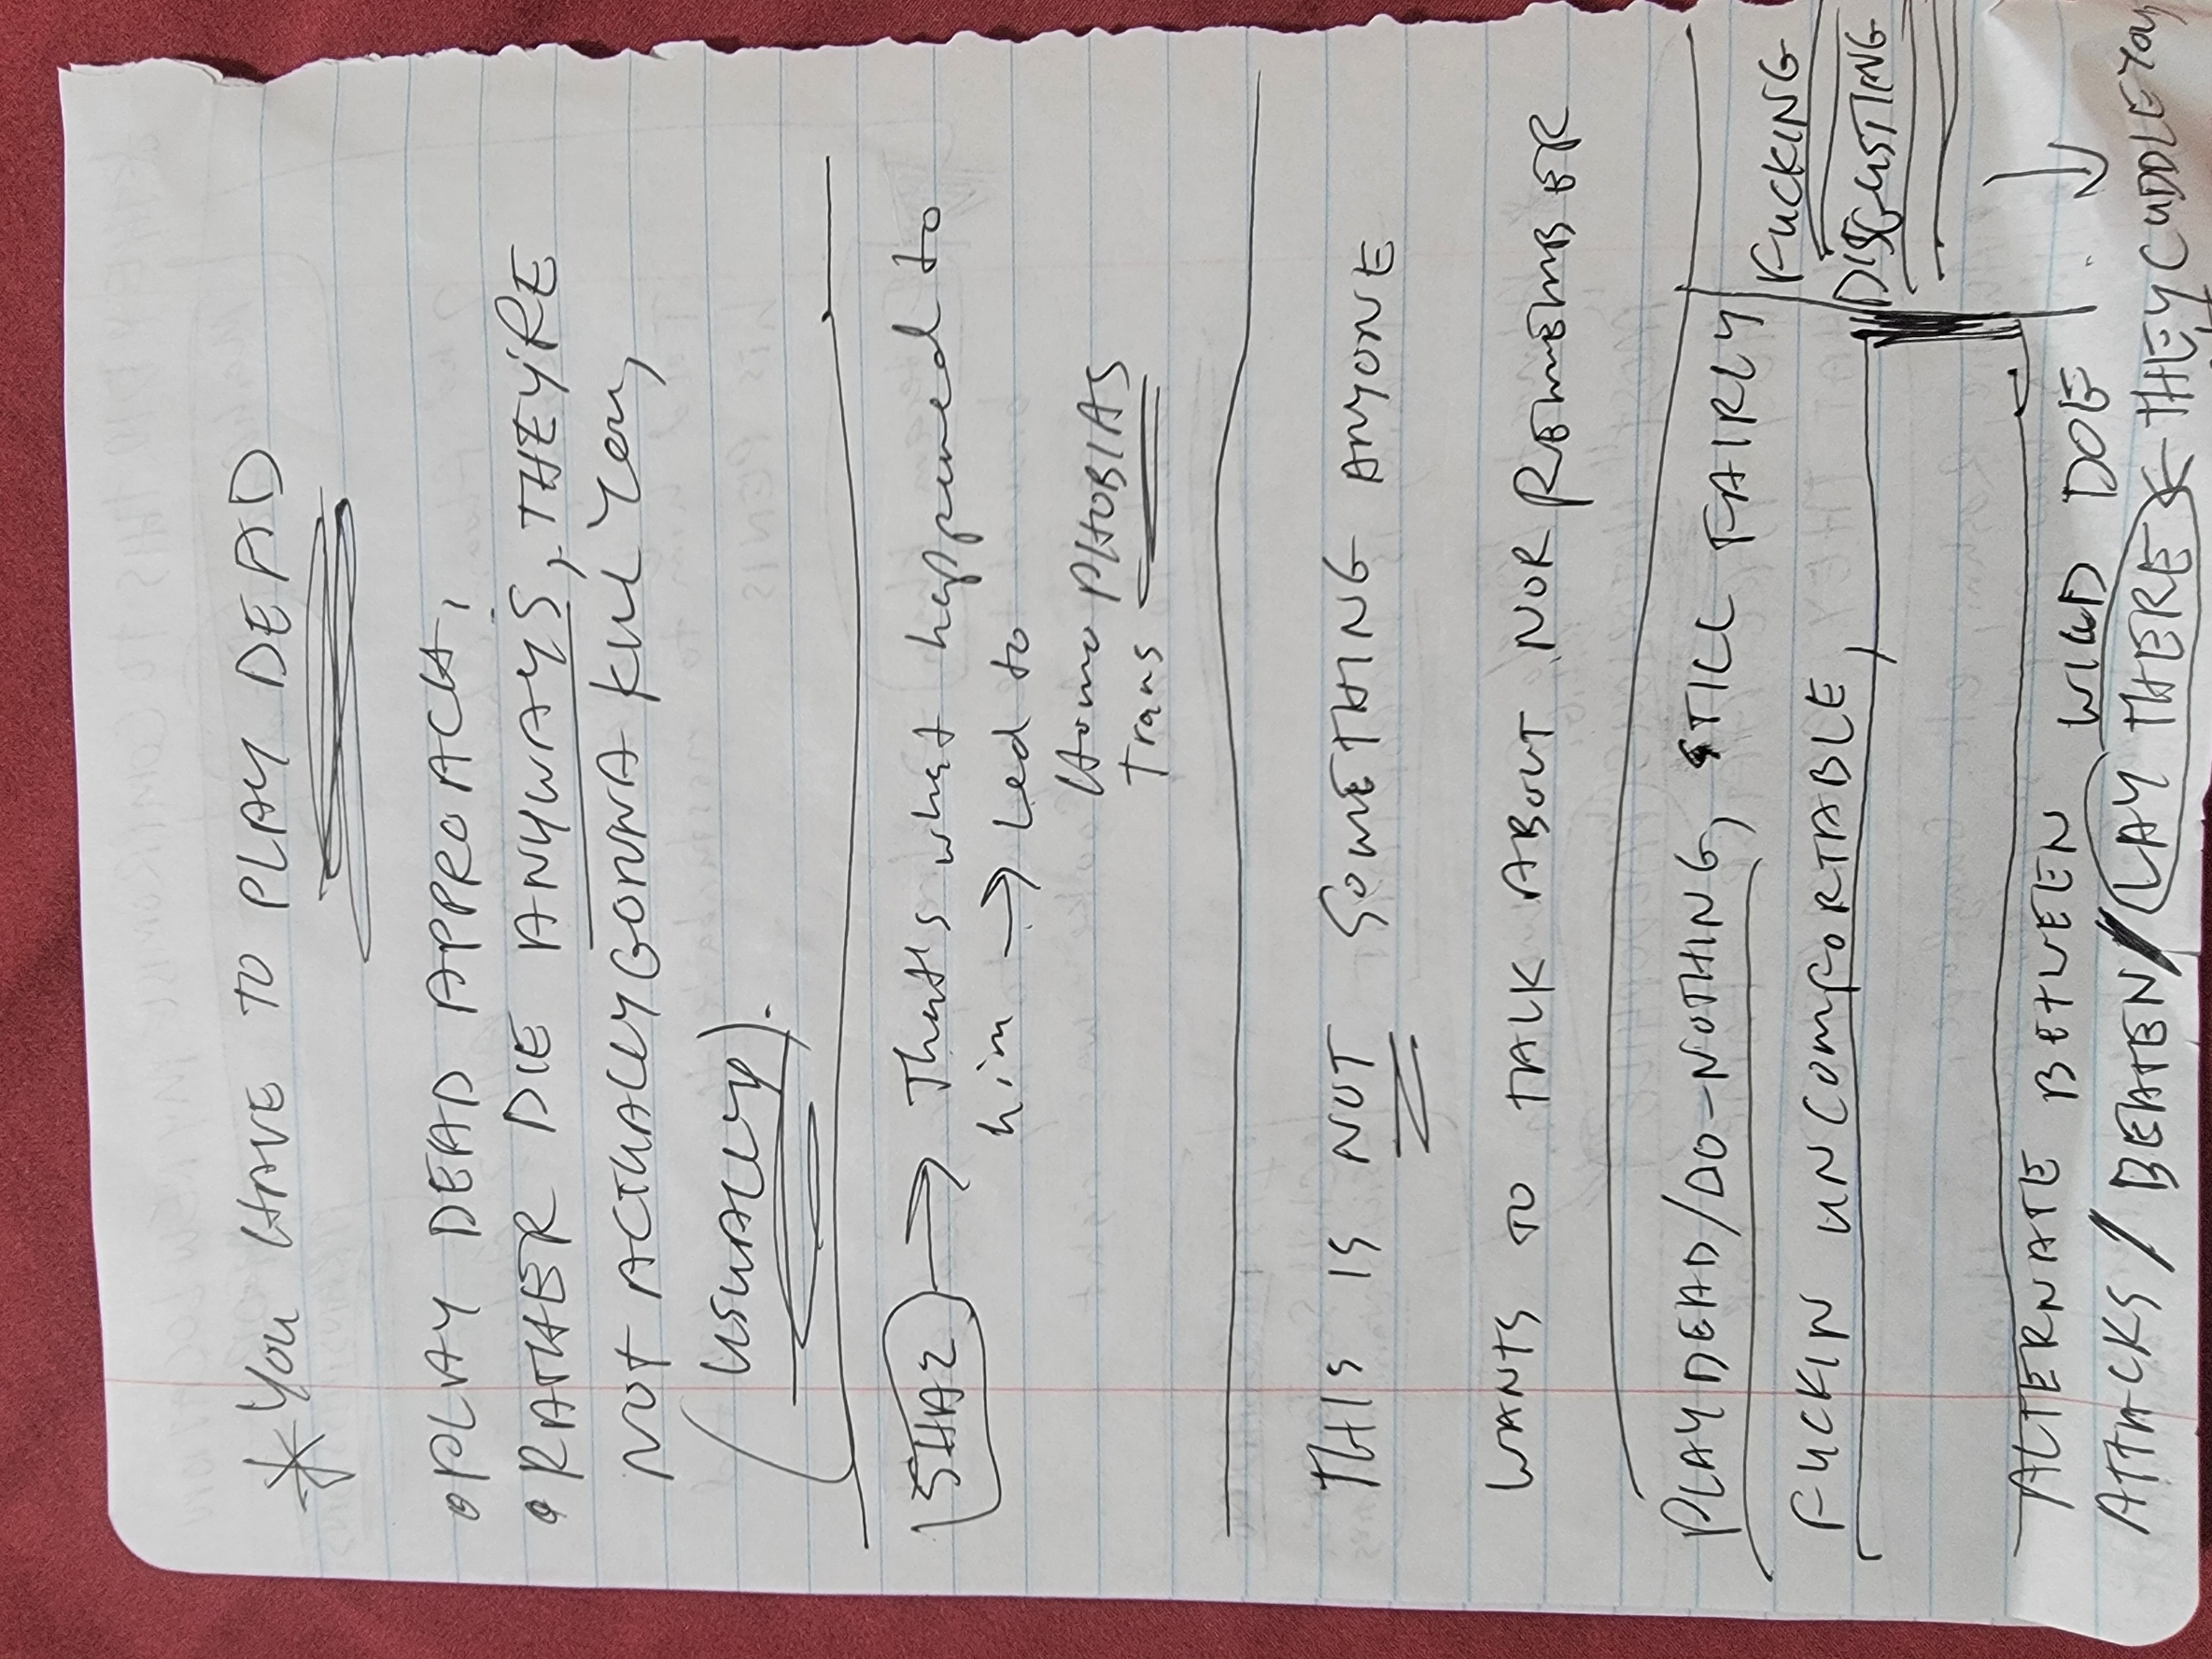 * YOU HAVE TO PLAY DEAD
• PLAY DEAD APPROACH,
• RATHER DIE ANYWAYS, THEY'RE
NOT ACTUALLY GONNA KILL YOU,
(USUALLY).
SHAZ → That's what happened to
him → Led to
Homo PHOBIAS
Trans
THIS IS NOT SOMETHING ANYONE
WANTS TO TALK ABOUT NOR REMEMBER
PLAY DEAD/DO-NOTHING, STILL FAIRLY
FUCKIN UNCOMFORTABLE,
FUCKING
DISGUSTING
ALTERNATE BETWEEN WILD DOG
ATTACKS / BEATEN / LAY THERE ← THEY CUDDLE YOU,